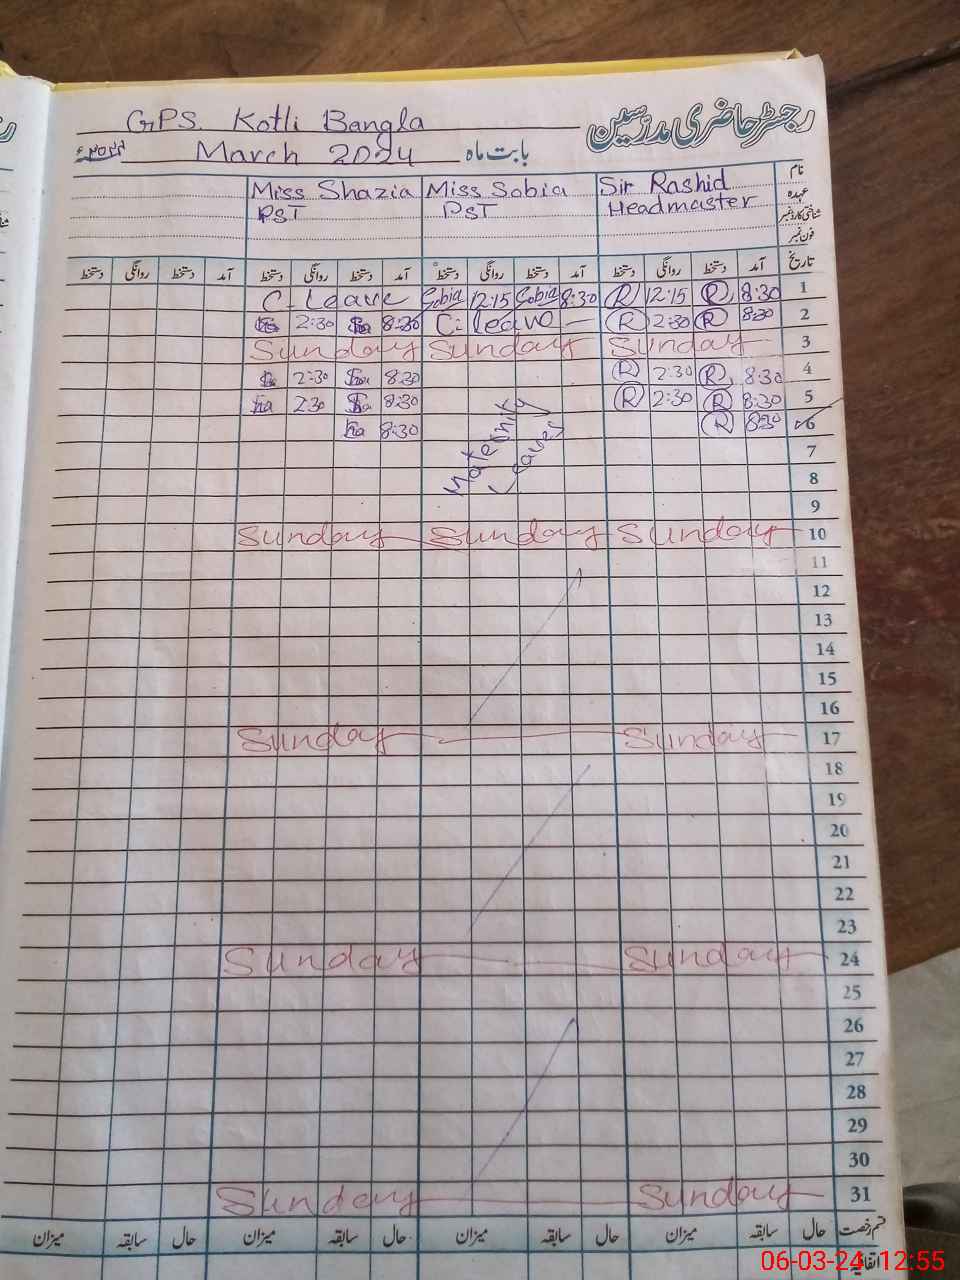 رجسٹر حاضری مدرسین
GPS. Kotli Bangla
بابت ماہ March 2024 ۲۰۲۴ء
نام Sir Rashid Miss Sobia Miss Shazia
عہدہ Headmaster PST PST
شناختی کارڈ نمبر
فون نمبر
تاریخ آمد دستخط روانگی دستخط آمد دستخط روانگی دستخط آمد دستخط روانگی دستخط آمد دستخط روانگی دستخط
1 8:30 R 12:15 R 8:30 Sobia 12:15 Sobia C. Leave
2 8:30 R 2:30 R C. leave 8:30 2:30
3 Sunday Sunday Sunday
4 8:30 R 2:30 R 8:30 2:30
5 8:30 R 2:30 R 8:30 2:30
6 8:30 R 8:30
Maternity
Leaves
7
8
9
10 Sunday Sunday Sunday
11
12
13
14
15
16
17 Sunday Sunday
18
19
20
21
22
23
24 Sunday Sunday
25
26
27
28
29
30
31 Sunday Sunday
قسم رخصت حال سابقہ میزان حال سابقہ میزان حال سابقہ میزان حال سابقہ میزان
اتفاقیہ
06-03-24 12:55